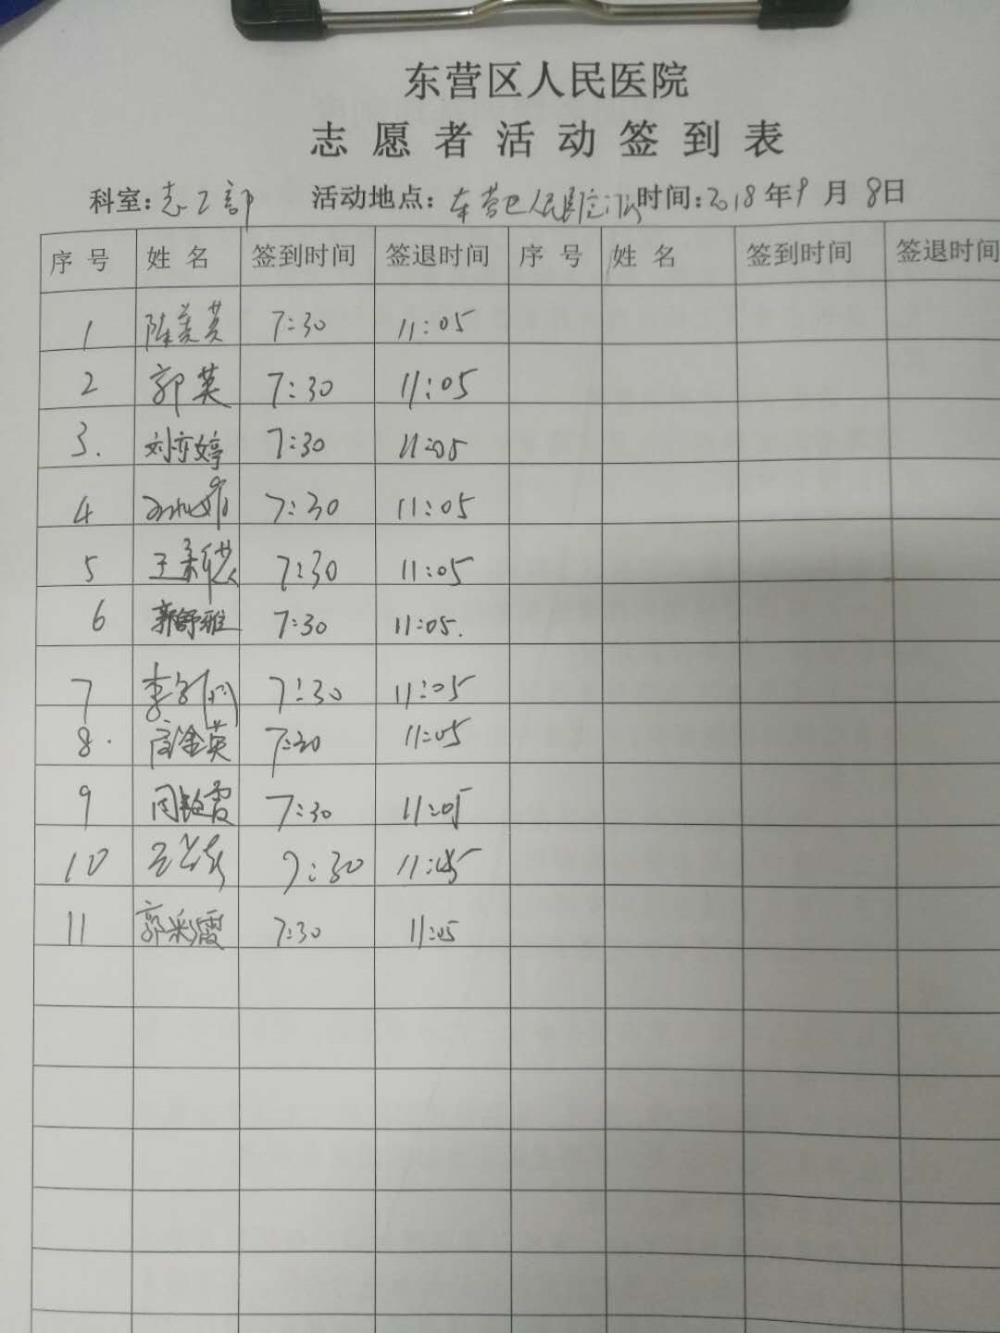 东营区人民医院
志愿者活动签到表
科室:志工部 活动地点:东营区人民医院 时间:2018年9月8日
序号 姓名 签到时间 签退时间 序号 姓名 签到时间 签退时间
1 陈 7:30 11:05
2 郭英 7:30 11:05
3. 刘亦婷 7:30 11:05
4 7:30 11:05
5 王 7:30 11:05
6 郭舒雅 7:30 11:05.
7 李 7:30 11:05
8. 金英 7:30 11:05
9 霞 7:30 11:05
10 7:30 11:05
11 郭彩霞 7:30 11:05